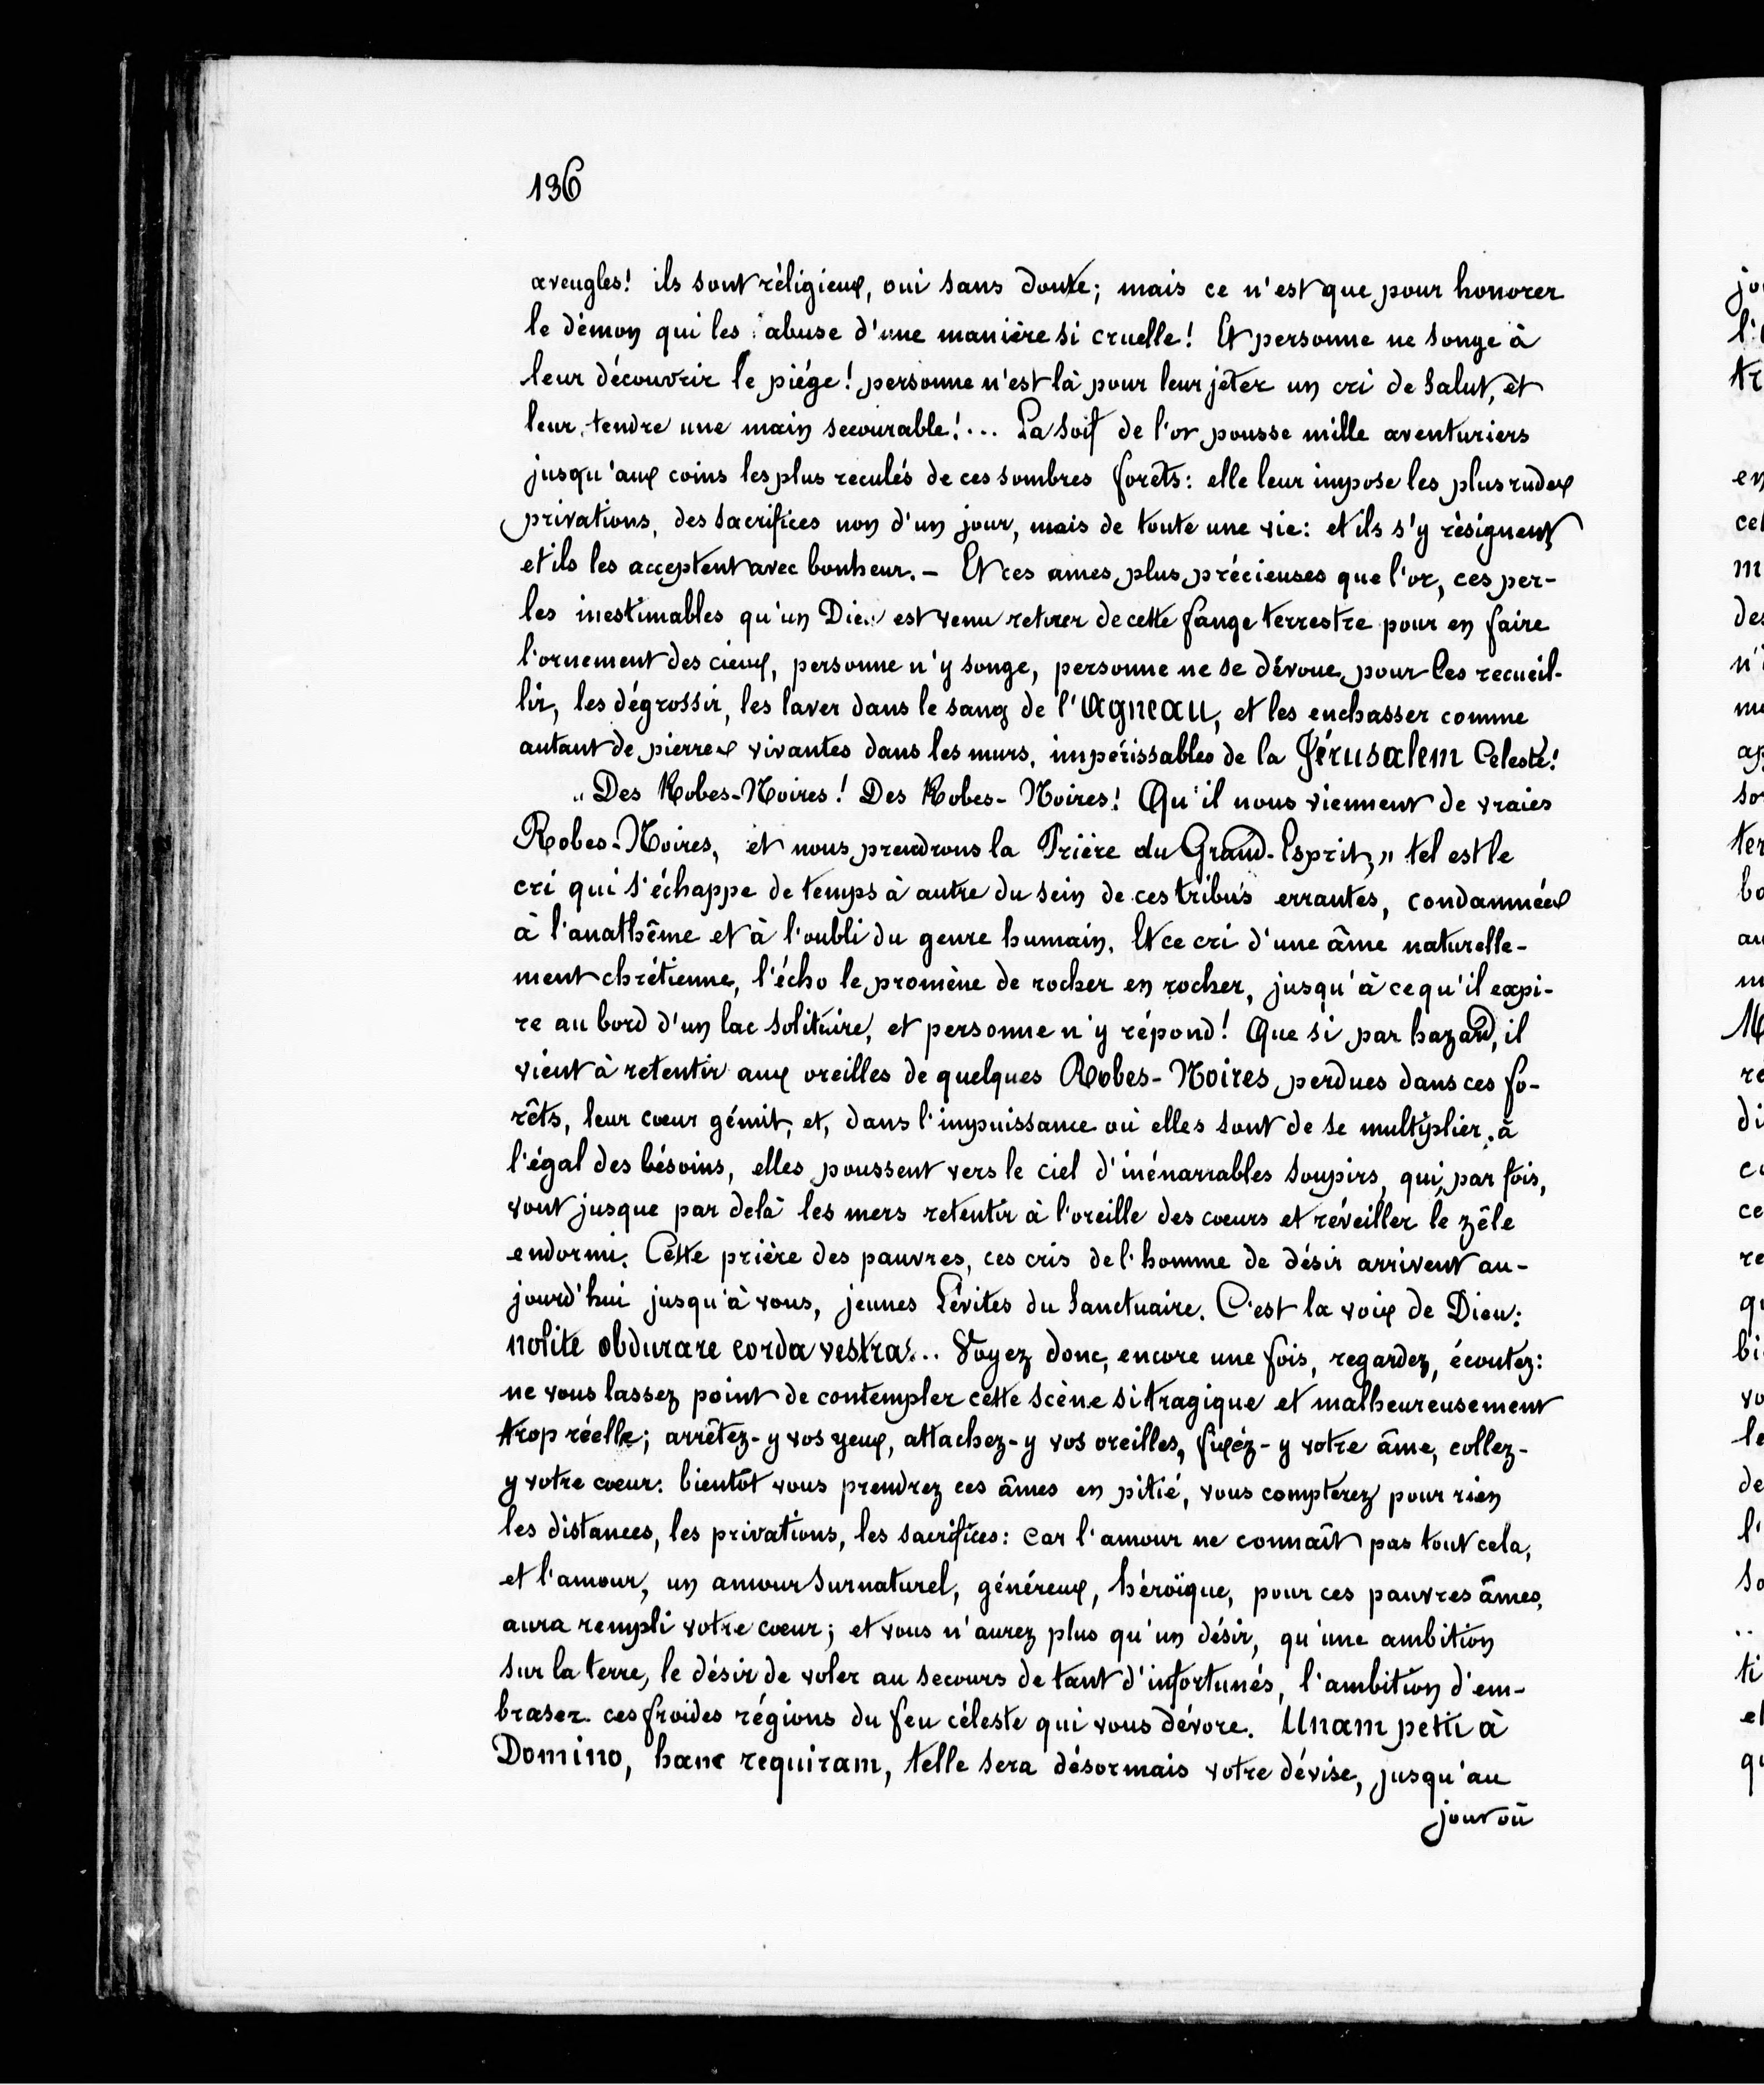 136
aveugles! ils sont réligieux, oui sans doute; mais ce n'est que pour honorer
le démon qui les abuse d'une manière si cruelle! Et personne ne songe à
leur découvrir le piége! personne n'est là pour leur jéter un cri de salut, et
leur tendre une main secourable!... La soif de l'or pousse mille aventuriers
jusqu'aux coins les plus reculés de ces sombres forêts: elle leur impose les plus rudes
privations, des sacrifices non d'un jour, mais de toute une vie: et ils s'y résignent,
et ils les acceptent avec bonheur. – Et ces ames plus précieuses que l'or, ces per-
les inestimables qu'un Dieu est venu retirer de cette fange terrestre pour en faire
l'ornement des cieux, personne n'y songe, personne ne se dévoue pour les recueil-
lir, les dégrossir, les laver dans le sang de l'Agneau, et les enchasser comme
autant de pierres vivantes dans les murs, impérissables de la Jérusalem Celeste!
„Des Robes-Noires! Des Robes-Noires! Qu'il nous viennent de vraies
Robes-Noires, et nous prendrons la Prière du Grand-Esprit,„ tel est le
cri qui s'échappe de temps à autre du sein de ces tribus errantes, condamnées
à l'anathême et à l'oubli du genre humain. Et ce cri d'une âme naturelle-
ment chrétienne, l'écho le promène de rocher en rocher, jusqu'à ce qu'il expi-
re au bord d'un lac solitaire, et personne n'y répond! Que si par hazard, il
vient à retentir aux oreilles de quelques Robes-Noires perdues dans ces fo-
rêts, leur cœur gémit, et, dans l'impuissance où elles sont de se multiplier à
l'égal des bésoins, elles poussent vers le ciel d'inénarrables soupirs, qui par fois,
vont jusque par delà les mers retentir à l'oreille des cœurs et réveiller le zêle
endormi. Cette prière des pauvres, ces cris de l'homme de désir arrivent au-
jourd'hui jusqu'à vous, jeunes Lévites du Sanctuaire. C'est la voix de Dieu:
nolite obdurare corda vestra!... Voyez donc, encore une fois, regardez, écoutez:
ne vous lassez point de contempler cette scène si tragique et malheureusement
trop réelle; arrêtez-y vos yeux, attachez-y vos oreilles, fixéz-y votre âme, collez-
y votre cœur: bientôt vous prendrez ces âmes en pitié, vous compterez pour rien
les distances, les privations, les sacrifices: car l'amour ne connaît pas tout cela,
et l'amour, un amour surnaturel, généreux, héroïque, pour ces pauvres âmes,
aura rempli votre cœur; et vous n'aurez plus qu'un désir, qu'une ambition
sur la terre, le désir de voler au secours de tant d'infortunés, l'ambition d'em-
braser ces froides régions du feu céleste qui vous dévore. Unam petii à
Domino, hanc requiram, telle sera désormais votre dévise, jusqu'au
jour où